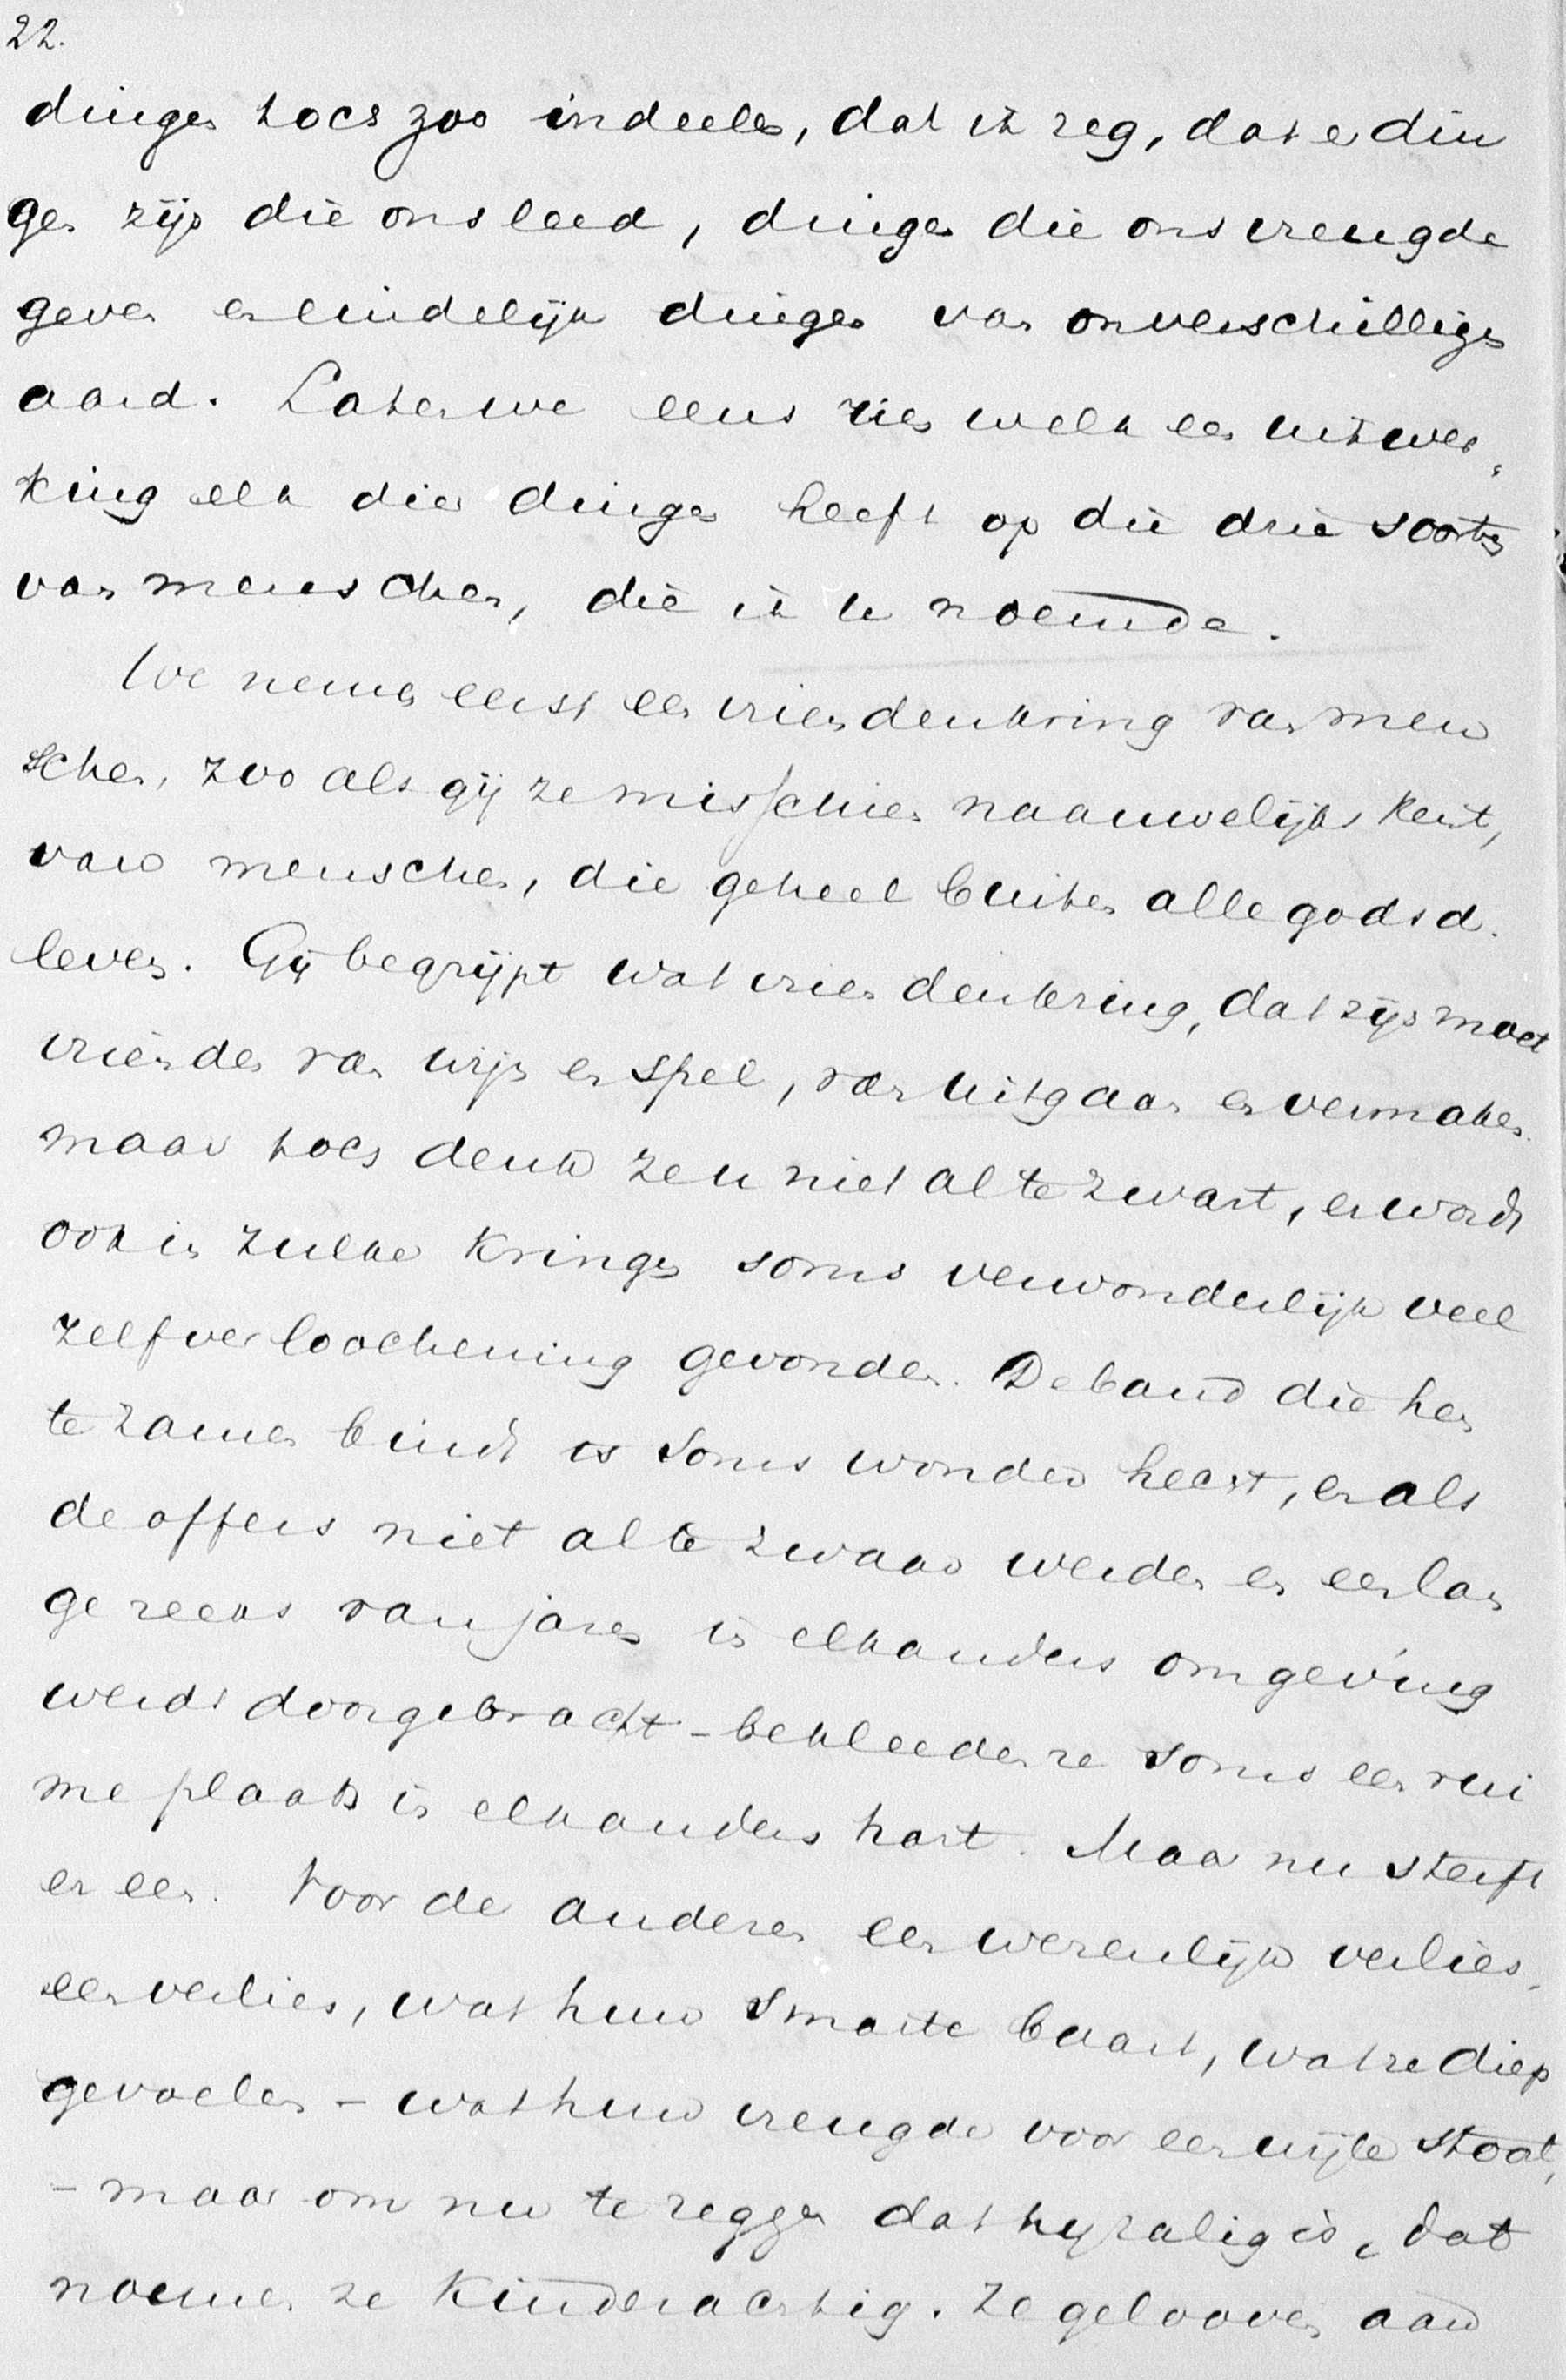 22.
dingen toch zoo indeelen, dat ik zeg, dat er din
gen zijn die ons leed, dingen die ons vreugde
geven en eindelijk dingen van onverschilligen
aard. Laten we eens zien welk een uitwer,
king elk dier dingen heeft op die drie soorten
van menschen, die ik u noemde.
We nemen eerst een vriendenkring van men
schen, zoo als gij ze misschien naauwelijks kent,
van menschen, die geheel buiten alle godsd.
leven. Gij begrijpt wat vriendenkring, dat zijn moet
vrienden van wijn en spel, van uitgaan en vermaken.
maar toch denk ze u niet al te zwart, er wordt
ook in zulke kringen soms verwonderlijk veel
zelfverloochening gevonden. De band die hen
te zamen bindt is soms wonder hecht, en als
de offers niet al te zwaar werden en een lan
ge reeks van jaren in elkanders omgeving
werdt doorgebracht - bekleeden ze soms een rui
me plaats in elkanders hart. Maar nu sterft
er een. Voor de anderen een wezenlijk verlies,
een verlies, wat hun smarte baart, wat ze diep
gevoelen - wat hun vreugde voor een wijle stoort,
- maar om nu te zeggen dat hij zalig is, dat
noemen ze kinderachtig. Ze gelooven aan